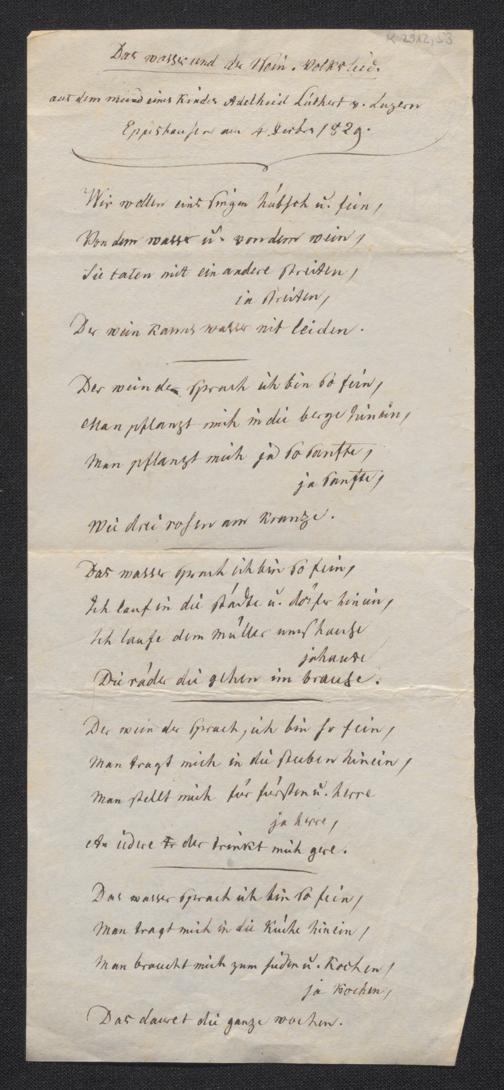 K 2912, 53
Das wasser und der Wein. Volkslied.
aus dem mund eines Kindes Adelheid Lüthert v. Luzern
Eppishausen am 4. 1829.
Wir wollen eins singen hübsch u. fein,
Von dem wasser u. von dem wein,
Sie taten mit ein andere streiten,
ja streiten,
Der wein kanns wasser nit leiden.
Der wein der sprach ich bin so fein,
Man pflanzt mich in die berge hinein,
Man pflanzt mich ja so sanfte,
ja sanfte,
Wie drei rosen am Kranze.
Das wasser sprach ich bin so fein,
Ich lauf in die städte u. dörfer hinein,
Ich laufe dem müller ums hause
ja hause
Die räder die gehen im brause.
Der wein der sprach, ich bin so fein,
Man tragt mich in die stuben hinein,
Man stellt mich für fürsten u. herre
ja herre,
An iedere der trinkt mich gere.
Das wasser sprach ich bin so fein,
Man tragt mich in die Küche hinein,
Man braucht mich zum sieden u. Kochen,
ja Kochen,
Das dauret die ganze wochen.